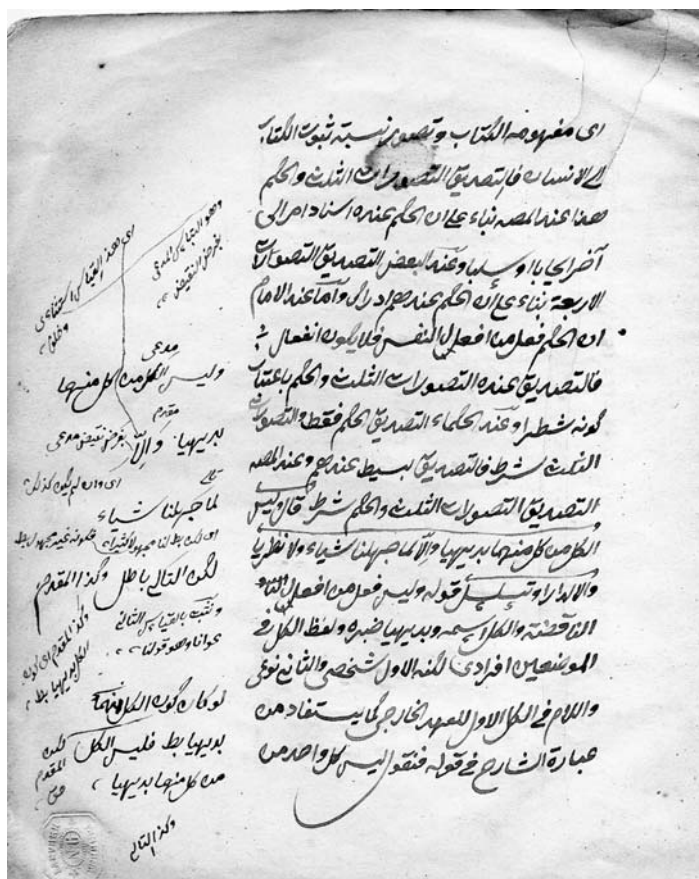 اى مفهومه الكتاب وتصور نسبة ثبوت الكتاب
الى الانسان فالتصديق التصورات الثلث والحكم
هذا عند المصه بناء على ان الحكم عنده اسناد امر الى
آخر ايجابا او سلبا وعند البعض التصديق التصورات
الاربعة بناء على ان الحكم عندهم ادراك واما عند الامام
ان الحكم فعل من افعال النفس فلا يكون انفعال
فالتصديق عنده التصورات الثلث والحكم باعتبار
كونه شطرا وعند الحكماء التصديق الحكم فقط والتصورات
الثلث شرط فالتصديق بسيط عندهم وعند المصه
التصديق التصورات الثلث والحكم شرط قال وليس
الكل من كل منهما بديهيا والا لما جهلنا شياء ولا نظريا
والا لدار او تسلسل قوله وليس فعل من افعال
الناقصة والكل اسمه وبديهيا خبره ولفظ الكل فى
الموضعين افرادى لكنه الاول شخصى والثانى نوعى
واللام فى الكل الاول للعهد الخارجى كما يستفاد من
عبارة الشارح فى قوله فنقول ليس كل واحد من
وهو القياس
بفرض النقيض
اى هذ القياس استثناءى
مدعى
وليس الكل من كل منهما
مقدم
بديهيا والا
بفرض نقيض مدعى
اى وان لم يكن كذلك
لما جهلنا شياء
لكن التالى باطل وكذ المقدم
وهو قولنا
لو كان كون الكل منهما
بديهيا بط فليس الكل
من كل منهما بديهيا
لكن
المقدم
حق
وكذ التالى